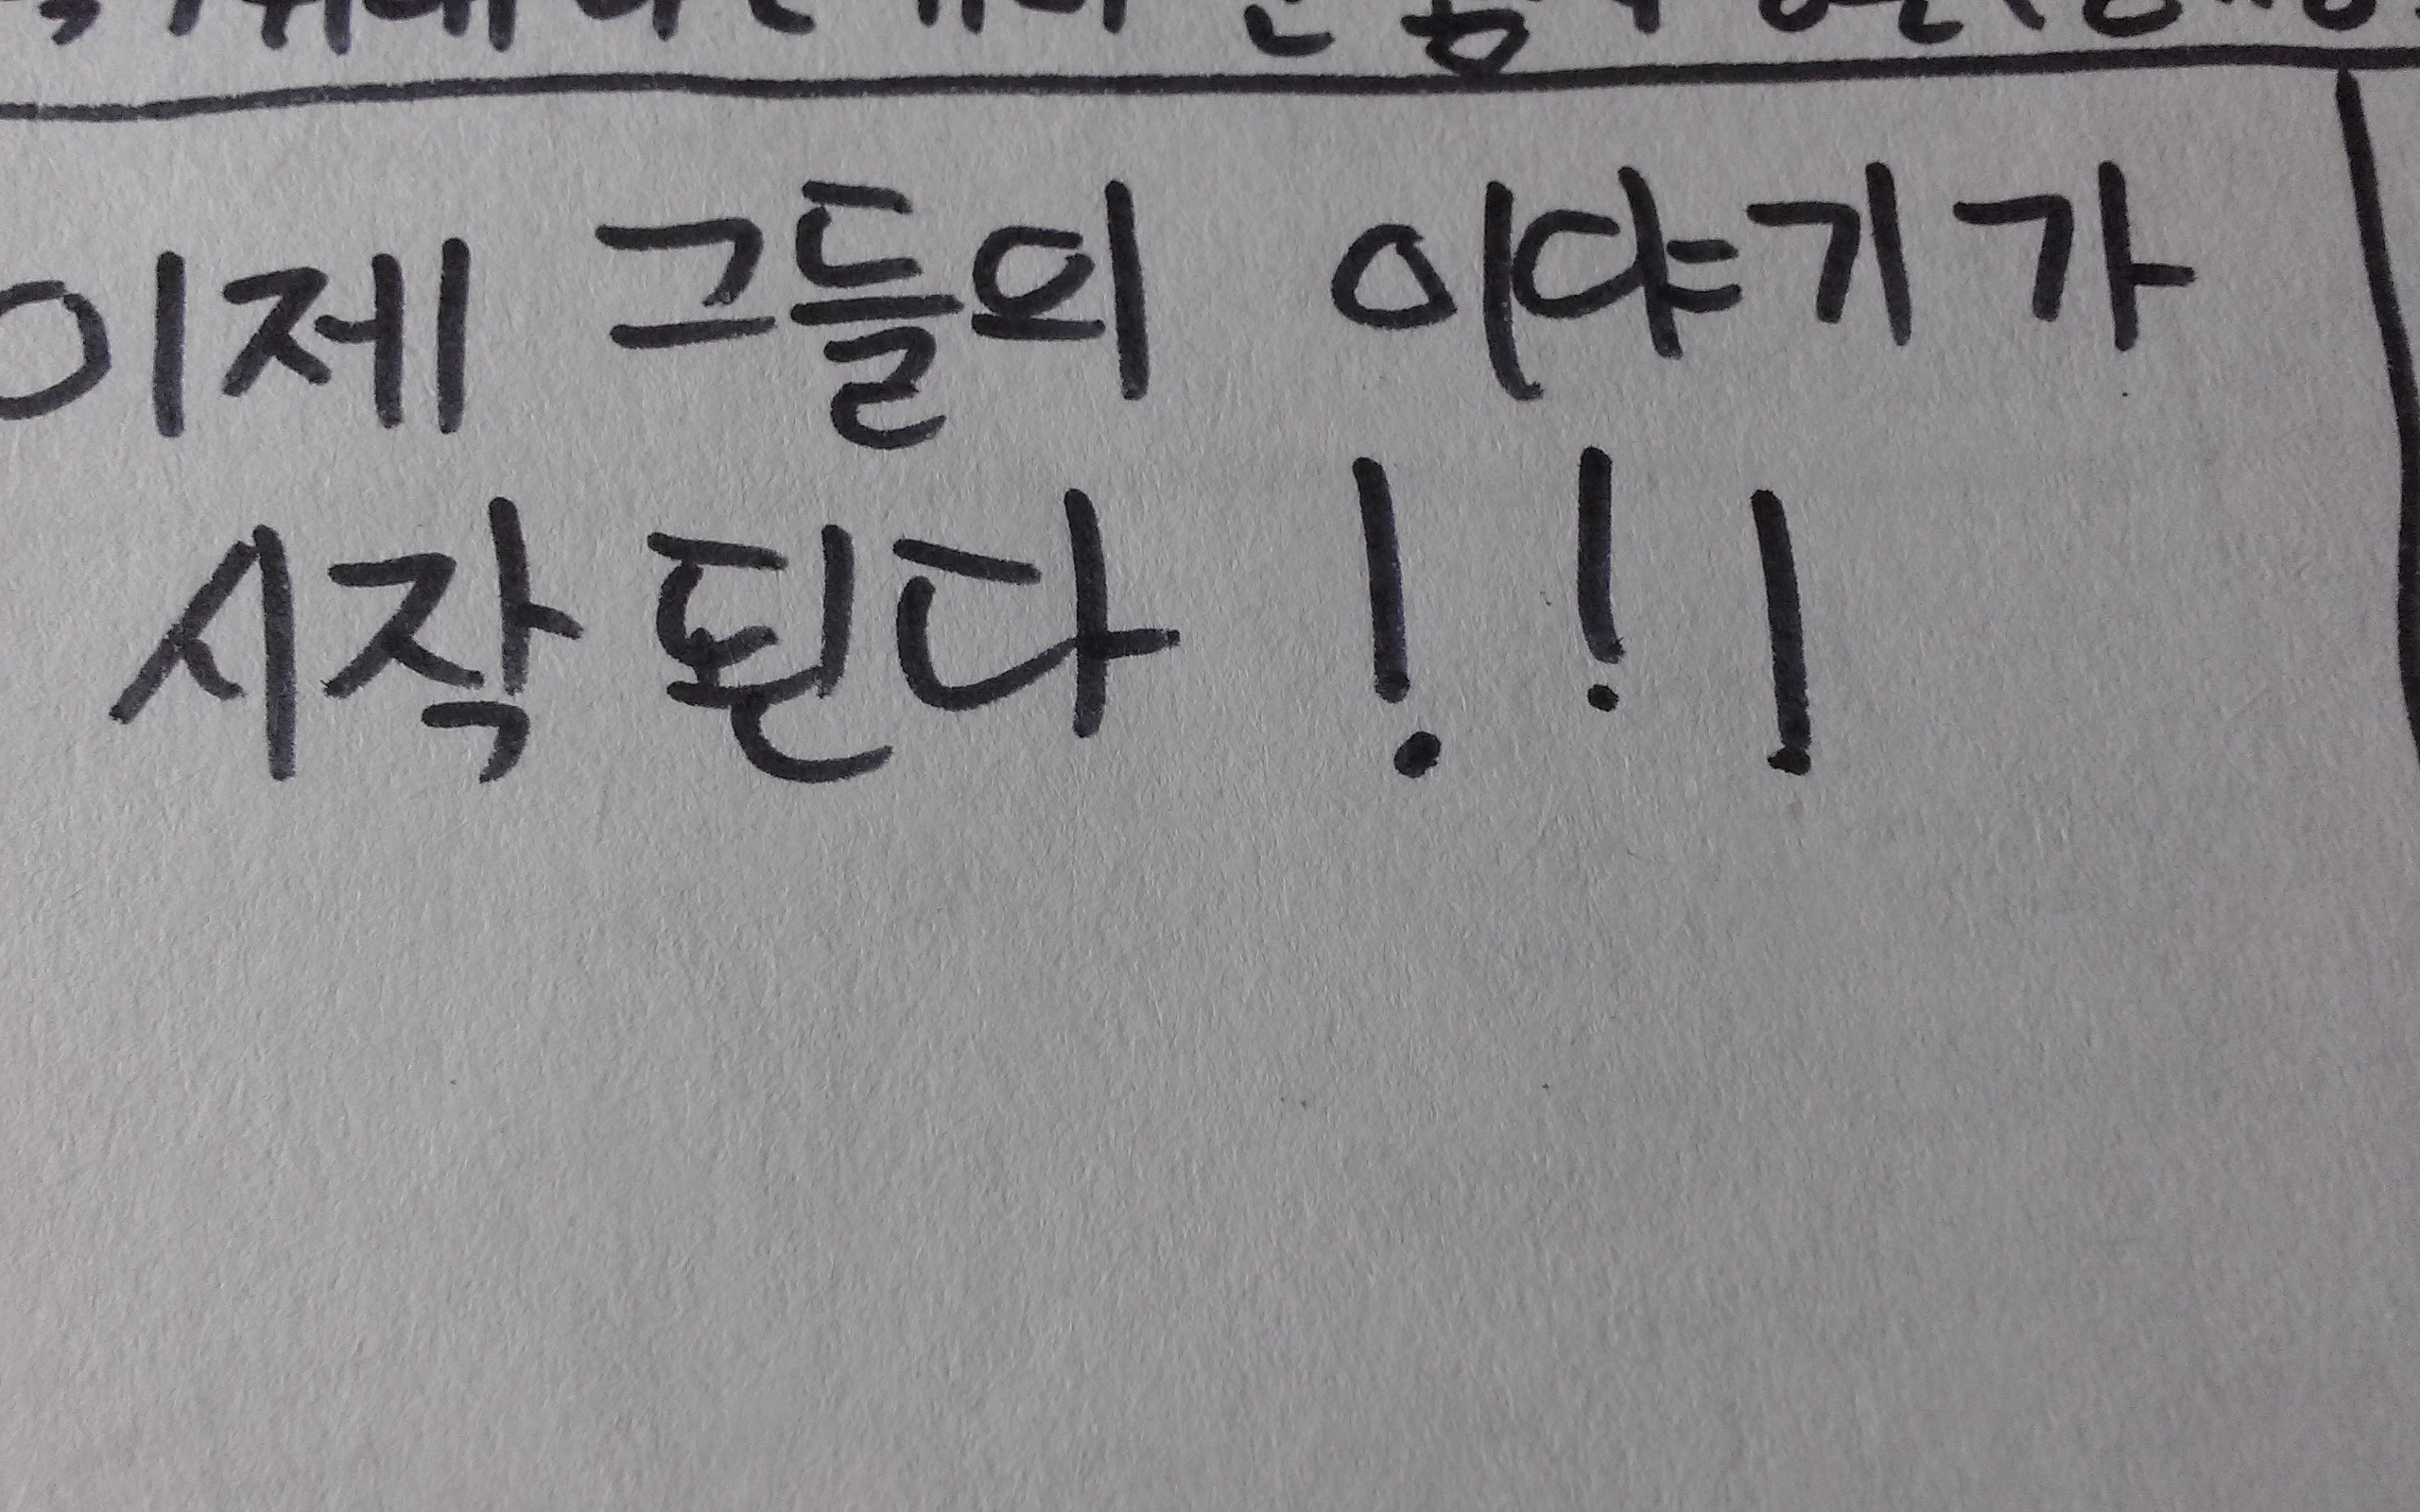 이제 그들의 이야기가
시작된다!!!